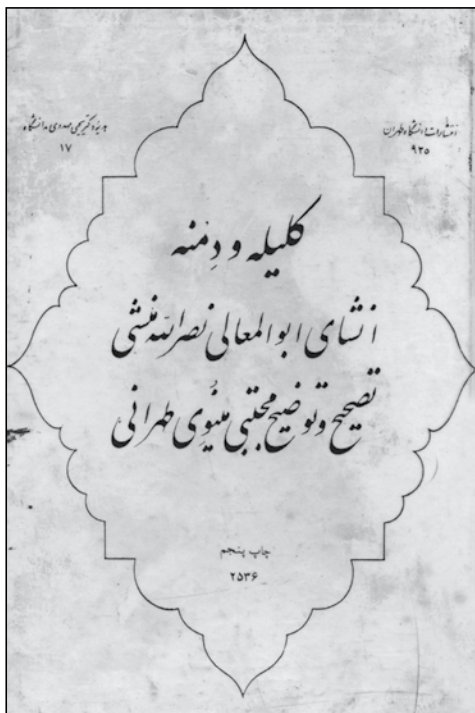 انتشارات دانشگاه طهران
۹۳۵
هدیهٔ دکتر یحیی مهدوی به دانشگاه
۱۷
کلیله و دِمنه
انشای ابوالمعالی نصرالله منشی
تصحیح و توضیح مجتبی مینُوی طهرانی
چاپ پنجم
۲۵۳۶